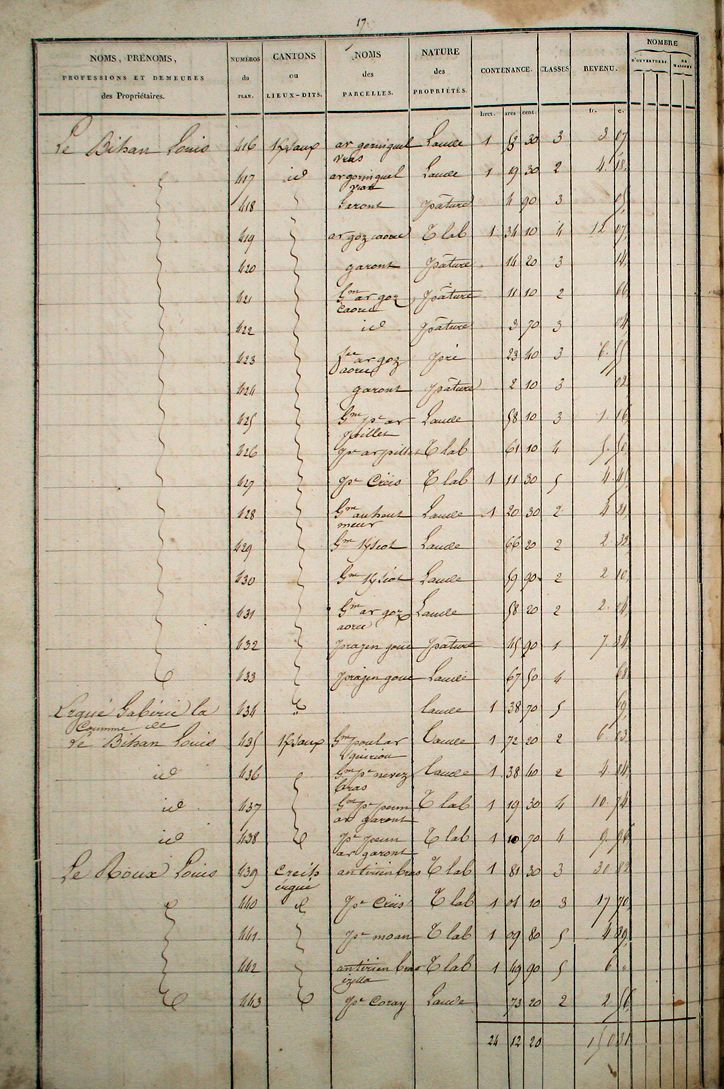 17.
NOMS, PRÉNOMS, PROFESSIONS ET DEMEURES des Propriétaires. NUMÉROS du PLAN. CANTONS ou LIEUX-DITS. NOMS des PARCELLES. NATURE des PROPRIÉTÉS. CONTENANCE. CLASSES REVENU. NOMBRE D'OUVERTURES. DE MAISONS
hect. ares cent. fr. c.
Le Bihan Louis 416 ar goninguel vras Laude 1 58 30 3 3 17
417 id ar goninguel vras Laude 1 19 30 2 4 18
418 Garont pature 4 90 3 05
419 ar goz aoree T lab 1 34 10 4 12 07
420 garont pature 14 20 3 14
421 Gm ar goz caoree pature 11 10 2 66
422 id pature 3 70 3 04
423 ar goz aoree pré 23 40 3 6 55
424 garont pature 2 10 3 02
425 Gm pe ar poillet Laude 58 10 3 1 16
426 pe ar pillet T lab 61 10 4 5 50
427 pe Creis T lab 1 11 30 5 4 45
428 Gm an hent meur Laude 1 20 30 2 4 21
429 Gm Laude 66 20 2 2 32
430 Gm Laude 59 90 2 2 10
431 Gm ar goz aoree Laude 58 20 2 2 04
432 prajen goue pature 45 90 1 7 34
433 prajen goue Laude 67 50 4 68
Ergué Gabéric la Commune de 434 laude 1 38 70 5 69
Le Bihan Louis 435 Gm poular Laude 1 72 20 2 6 03
id 436 Gm pe nevez bras laude 1 38 40 2 4 84
id 437 Gm pe penn ar garont T lab 1 19 30 4 10 74
id 438 pe penn ar garont T lab 1 10 70 4 9 96
Le Roux Louis 439 Creis ergue an tirien bras T lab 1 81 30 3 30 82
440 pe Creis T lab 1 04 10 3 17 70
441 pe moan T lab 1 09 80 5 4 39
442 an tirien bras izella T lab 1 49 90 5 6 "
443 pe Coray Laude 73 20 2 2 56
24 12 20